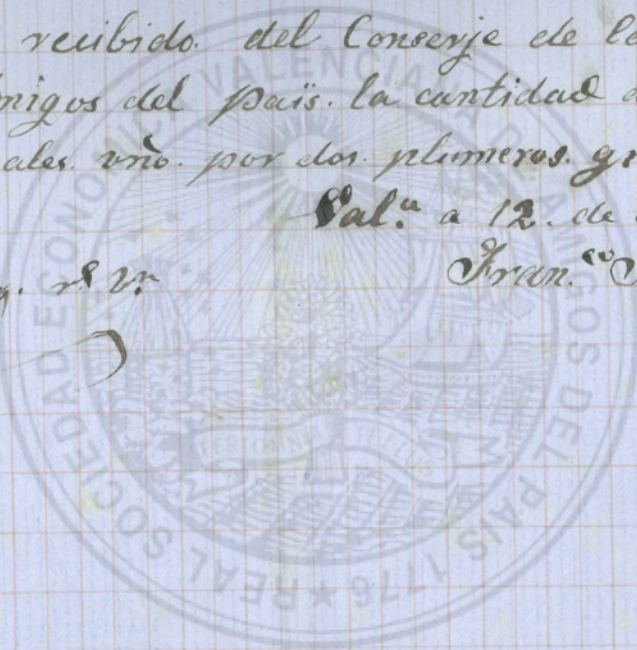 recibido. del Conserje de
amigos del païs. la cantidad
ales. vño. por dos. plumeros.
Val.ª a 12. de
rˢ vⁿ
Fran.ᶜᵒ
REAL SOCIEDAD ECONOMICA VALENCIANA DE AMIGOS DEL PAIS 1776